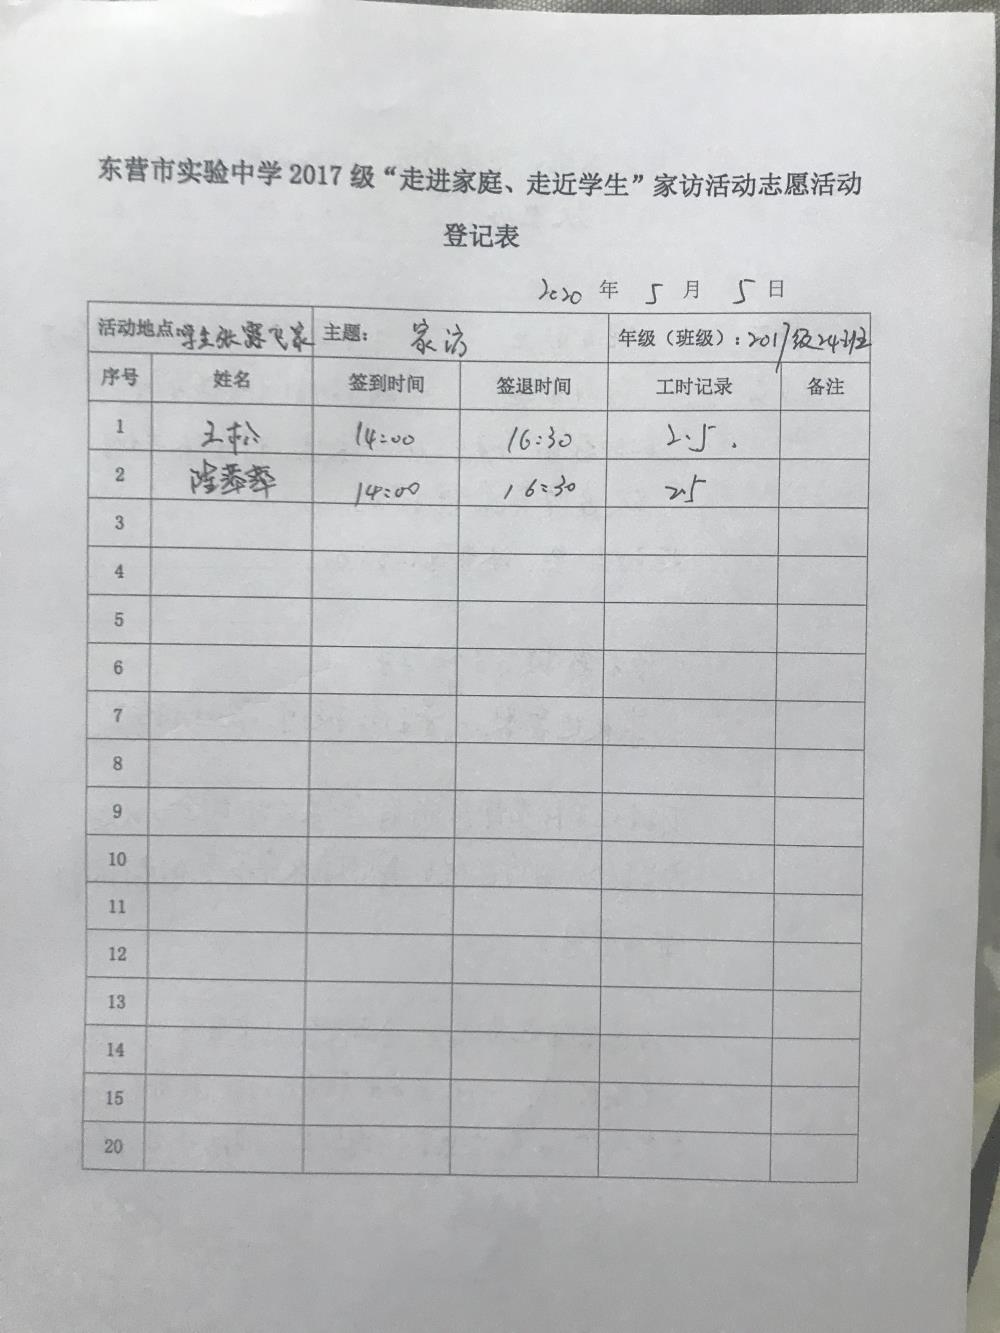 东营市实验中学2017级“走进家庭、走近学生”家访活动志愿活动
登记表
2020 年 5 月 5 日
活动地点 学生张露飞家 主题： 家访 年级（班级）：2017级24班
序号 姓名 签到时间 签退时间 工时记录 备注
1 王松 14:00 16:30 2.5.
2 14:00 16:30 2.5
3
4
5
6
7
8
9
10
11
12
13
14
15
20